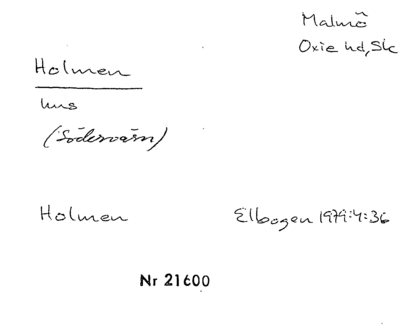 Malmö
Oxie hd, Sk
Holmen
hus
(Södervärn)
Holmen Elbogen 1979:4:36
Nr 21600